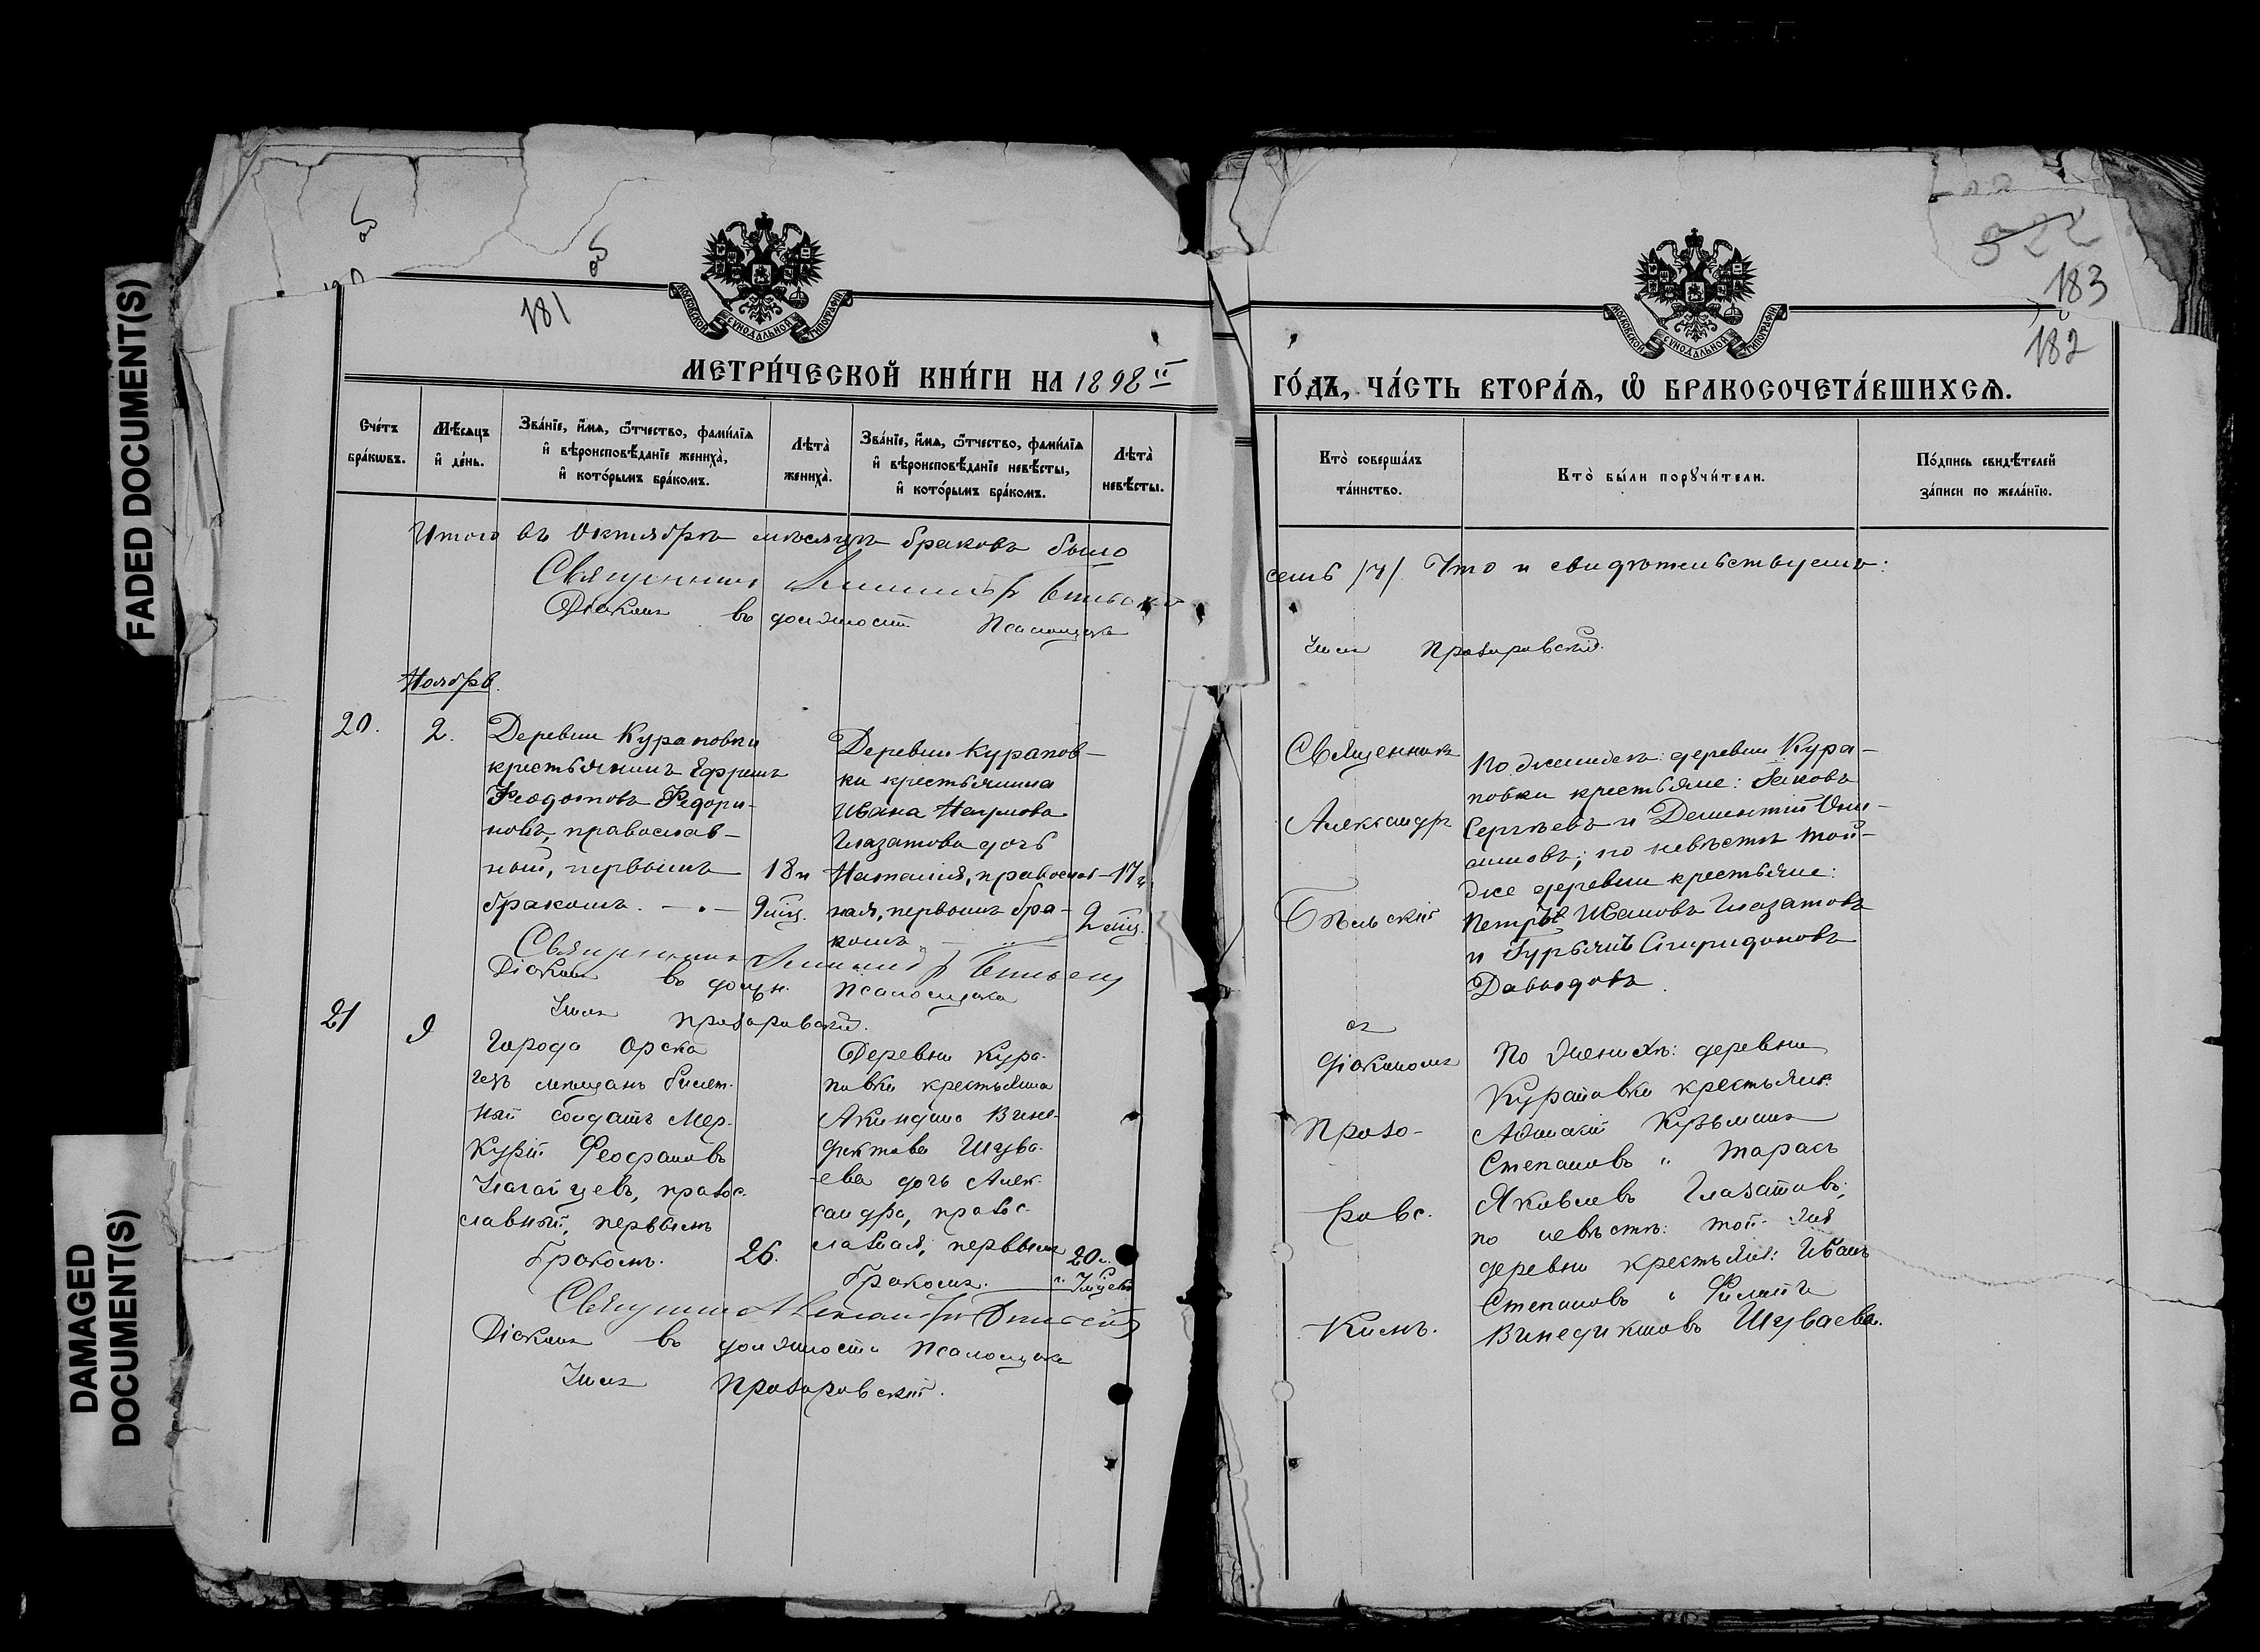 FADED DOCUMENT(S)
DAMAGED
DOCUMENT(S)
181
МОСКОВСКОЙ СУНОДАЛЬНОЙ ТИПОГРАФІИ
МЕТРИ́ЧЕСКОЙ КНИ́ГИ НА 1898 й
Сче́тъ
бра́кѡвъ.
Мѣ́сяцъ
и҆ де́нь.
Зва́нїе, и҆́мя, ѻ҆́тчество, фами́лїя
и҆ вѣроисповѣ́данїе жениха̀,
и҆ кото́рымъ бра́комъ.
Лѣта̀
жениха̀.
Зва́нїе, и҆́мя, ѻ҆́тчество, фами́лїя
и҆ вѣроисповѣ́данїе невѣ́сты,
и҆ кото́рымъ бра́комъ.
Лѣта̀
невѣ́сты.
Итого въ Октябрѣ мѣсяцѣ браковъ было
Священникъ
Діаконъ въ должности Псаломщика
Ноябрь.
20.
2.
Деревни Курановки
крестьянинъ Ефремъ
Феодотовъ Федори-
новъ, православ-
ный, первымъ
бракомъ.
18 и
9 мѣц.
Деревни Куранов-
ки крестьянина
Ивана Наумова
Глазатова дочь
Наталія, православ-
ная, первымъ бра-
комъ
17 и
2 мѣц.
Священникъ
Діаконъ въ должн. Псаломщика
Прозоровскій.
21
9
Города Орска
изъ мѣщанъ билет-
ный солдатъ Мер-
курій Феофановъ
Нагайцевъ, правос-
славный, первымъ
бракомъ.
26.
Деревни Кура-
новки крестьянина
Акиндина Вине-
диктова Шува-
ева дочь Алек-
сандра, правос-
лавная, первымъ
бракомъ.
20 и
Священникъ Александръ
Діаконъ въ должности Псаломщика
Прозоровскій.
522
183
182
МОСКОВСКОЙ СУНОДАЛЬНОЙ ТИПОГРАФІИ
ГО́ДЪ, ЧА́СТЬ ВТОРА́Я, Ѽ БРАКОСОЧЕТА́ВШИХСЯ.
Кто̀ соверша́лъ
та́инство.
Кто̀ бы́ли порꙋчи́тели.
По́дпись свидѣ́телей
за́писи по жела́нїю.
семь /7/. Что и свидѣтельствуемъ:
Прозоровскій.
Священникъ
Александръ
Бѣльскій
По женихѣ: деревни Кура-
новки крестьяне: Яковъ
Сергѣевъ и Дементій
по невѣстѣ той-
же деревни крестьяне:
Петръ Ивановъ Глазатовъ
и Гурьянъ Спиридоновъ
Давыдовъ.
съ
діакономъ
Прозо-
ровс-
кимъ.
По женихѣ: деревни
Курановки крестьяне:
Кузьминъ
Степановъ и Тарасъ
Яковлевъ Глазатовъ;
по невѣстѣ: той-же
деревни крестьяне: Иванъ
Степановъ и Филиппъ
Винедиктовъ Шуваевы.